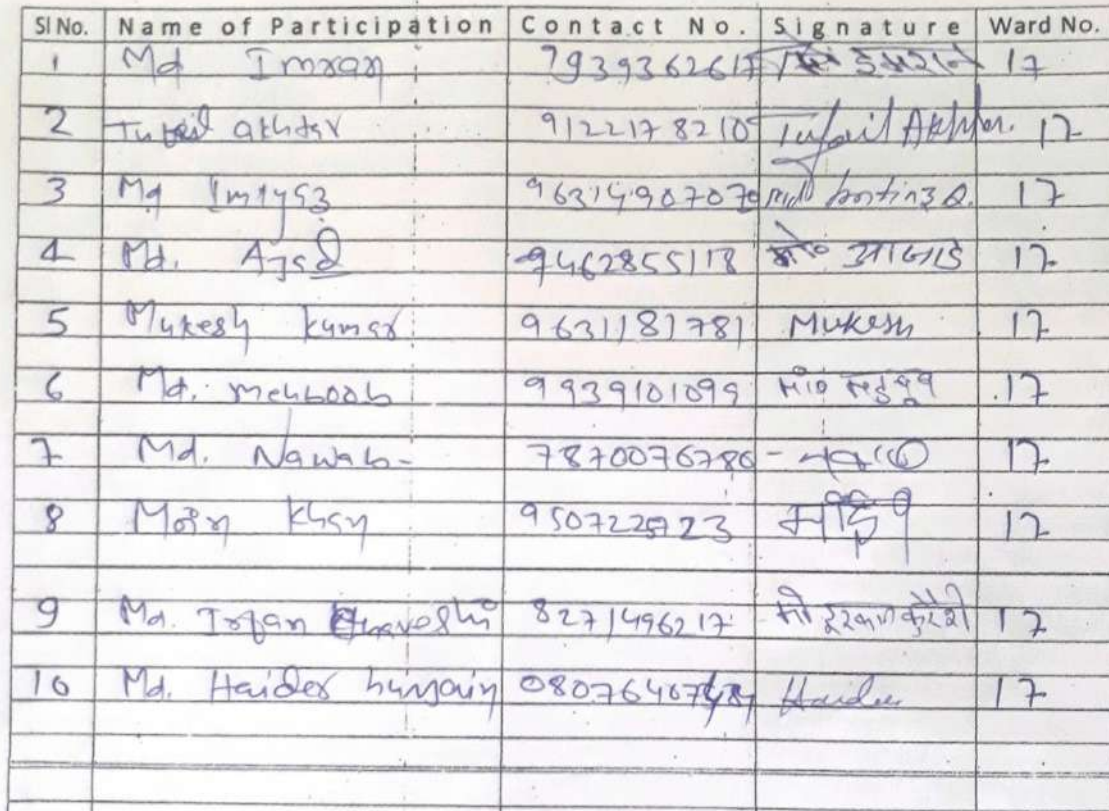 Sl No. Name of Participation Contact No. Signature Ward No.
1 Md Imran 7939362617 इमरान 17
2 Tufail akhtar 9122178210 Tufail Akhtar. 17
3 Md Imtyaz 17
4 Md. Azad 9462855118 मो० आजाद 17
5 Mukesh Kumar 9631181781 Mukesh 17
6 Md. Mehboob 9939101099 मो० महबुब 17
7 Md. Nawab- 7870076786 - नवाब 17
8 Moin Khan 17
9 Md. Irfan 8271496217 मो इरफान कुरैशी 17
10 Md. Haider Haider 17